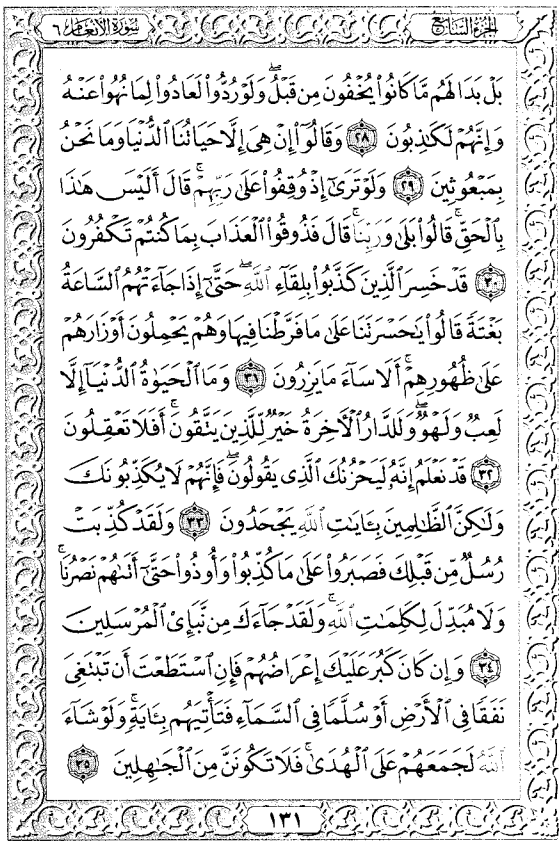 الجزء السابع سورة الأنعام ٦
بَلْ بَدَا لَهُم مَّا كَانُوا۟ يُخْفُونَ مِن قَبْلُ ۖ وَلَوْ رُدُّوا۟ لَعَادُوا۟ لِمَا نُهُوا۟ عَنْهُ
وَإِنَّهُمْ لَكَـٰذِبُونَ ٢٨ وَقَالُوٓا۟ إِنْ هِىَ إِلَّا حَيَاتُنَا ٱلدُّنْيَا وَمَا نَحْنُ
بِمَبْعُوثِينَ ٢٩ وَلَوْ تَرَىٰٓ إِذْ وُقِفُوا۟ عَلَىٰ رَبِّهِمْ ۚ قَالَ أَلَيْسَ هَـٰذَا
بِٱلْحَقِّ ۚ قَالُوا۟ بَلَىٰ وَرَبِّنَا ۚ قَالَ فَذُوقُوا۟ ٱلْعَذَابَ بِمَا كُنتُمْ تَكْفُرُونَ
٣٠ قَدْ خَسِرَ ٱلَّذِينَ كَذَّبُوا۟ بِلِقَآءِ ٱللَّهِ ۖ حَتَّىٰٓ إِذَا جَآءَتْهُمُ ٱلسَّاعَةُ
بَغْتَةً قَالُوا۟ يَـٰحَسْرَتَنَا عَلَىٰ مَا فَرَّطْنَا فِيهَا وَهُمْ يَحْمِلُونَ أَوْزَارَهُمْ
عَلَىٰ ظُهُورِهِمْ ۚ أَلَا سَآءَ مَا يَزِرُونَ ٣١ وَمَا ٱلْحَيَوٰةُ ٱلدُّنْيَآ إِلَّا
لَعِبٌ وَلَهْوٌ ۖ وَلَلدَّارُ ٱلْـَٔاخِرَةُ خَيْرٌ لِّلَّذِينَ يَتَّقُونَ ۗ أَفَلَا تَعْقِلُونَ
٣٢ قَدْ نَعْلَمُ إِنَّهُۥ لَيَحْزُنُكَ ٱلَّذِى يَقُولُونَ ۖ فَإِنَّهُمْ لَا يُكَذِّبُونَكَ
وَلَـٰكِنَّ ٱلظَّـٰلِمِينَ بِـَٔايَـٰتِ ٱللَّهِ يَجْحَدُونَ ٣٣ وَلَقَدْ كُذِّبَتْ
رُسُلٌ مِّن قَبْلِكَ فَصَبَرُوا۟ عَلَىٰ مَا كُذِّبُوا۟ وَأُوذُوا۟ حَتَّىٰٓ أَتَىٰهُمْ نَصْرُنَا ۚ
وَلَا مُبَدِّلَ لِكَلِمَـٰتِ ٱللَّهِ ۚ وَلَقَدْ جَآءَكَ مِن نَّبَإِى۟ ٱلْمُرْسَلِينَ
٣٤ وَإِن كَانَ كَبُرَ عَلَيْكَ إِعْرَاضُهُمْ فَإِنِ ٱسْتَطَعْتَ أَن تَبْتَغِىَ
نَفَقًا فِى ٱلْأَرْضِ أَوْ سُلَّمًا فِى ٱلسَّمَآءِ فَتَأْتِيَهُم بِـَٔايَةٍ ۚ وَلَوْ شَآءَ
ٱللَّهُ لَجَمَعَهُمْ عَلَى ٱلْهُدَىٰ ۚ فَلَا تَكُونَنَّ مِنَ ٱلْجَـٰهِلِينَ ٣٥
١٣١